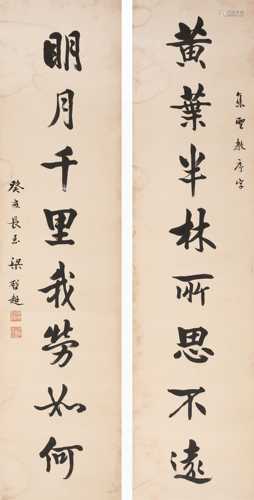 集聖教序字
黃葉半林所思不遠
明月千里我勞如何
癸亥長至 梁啓超